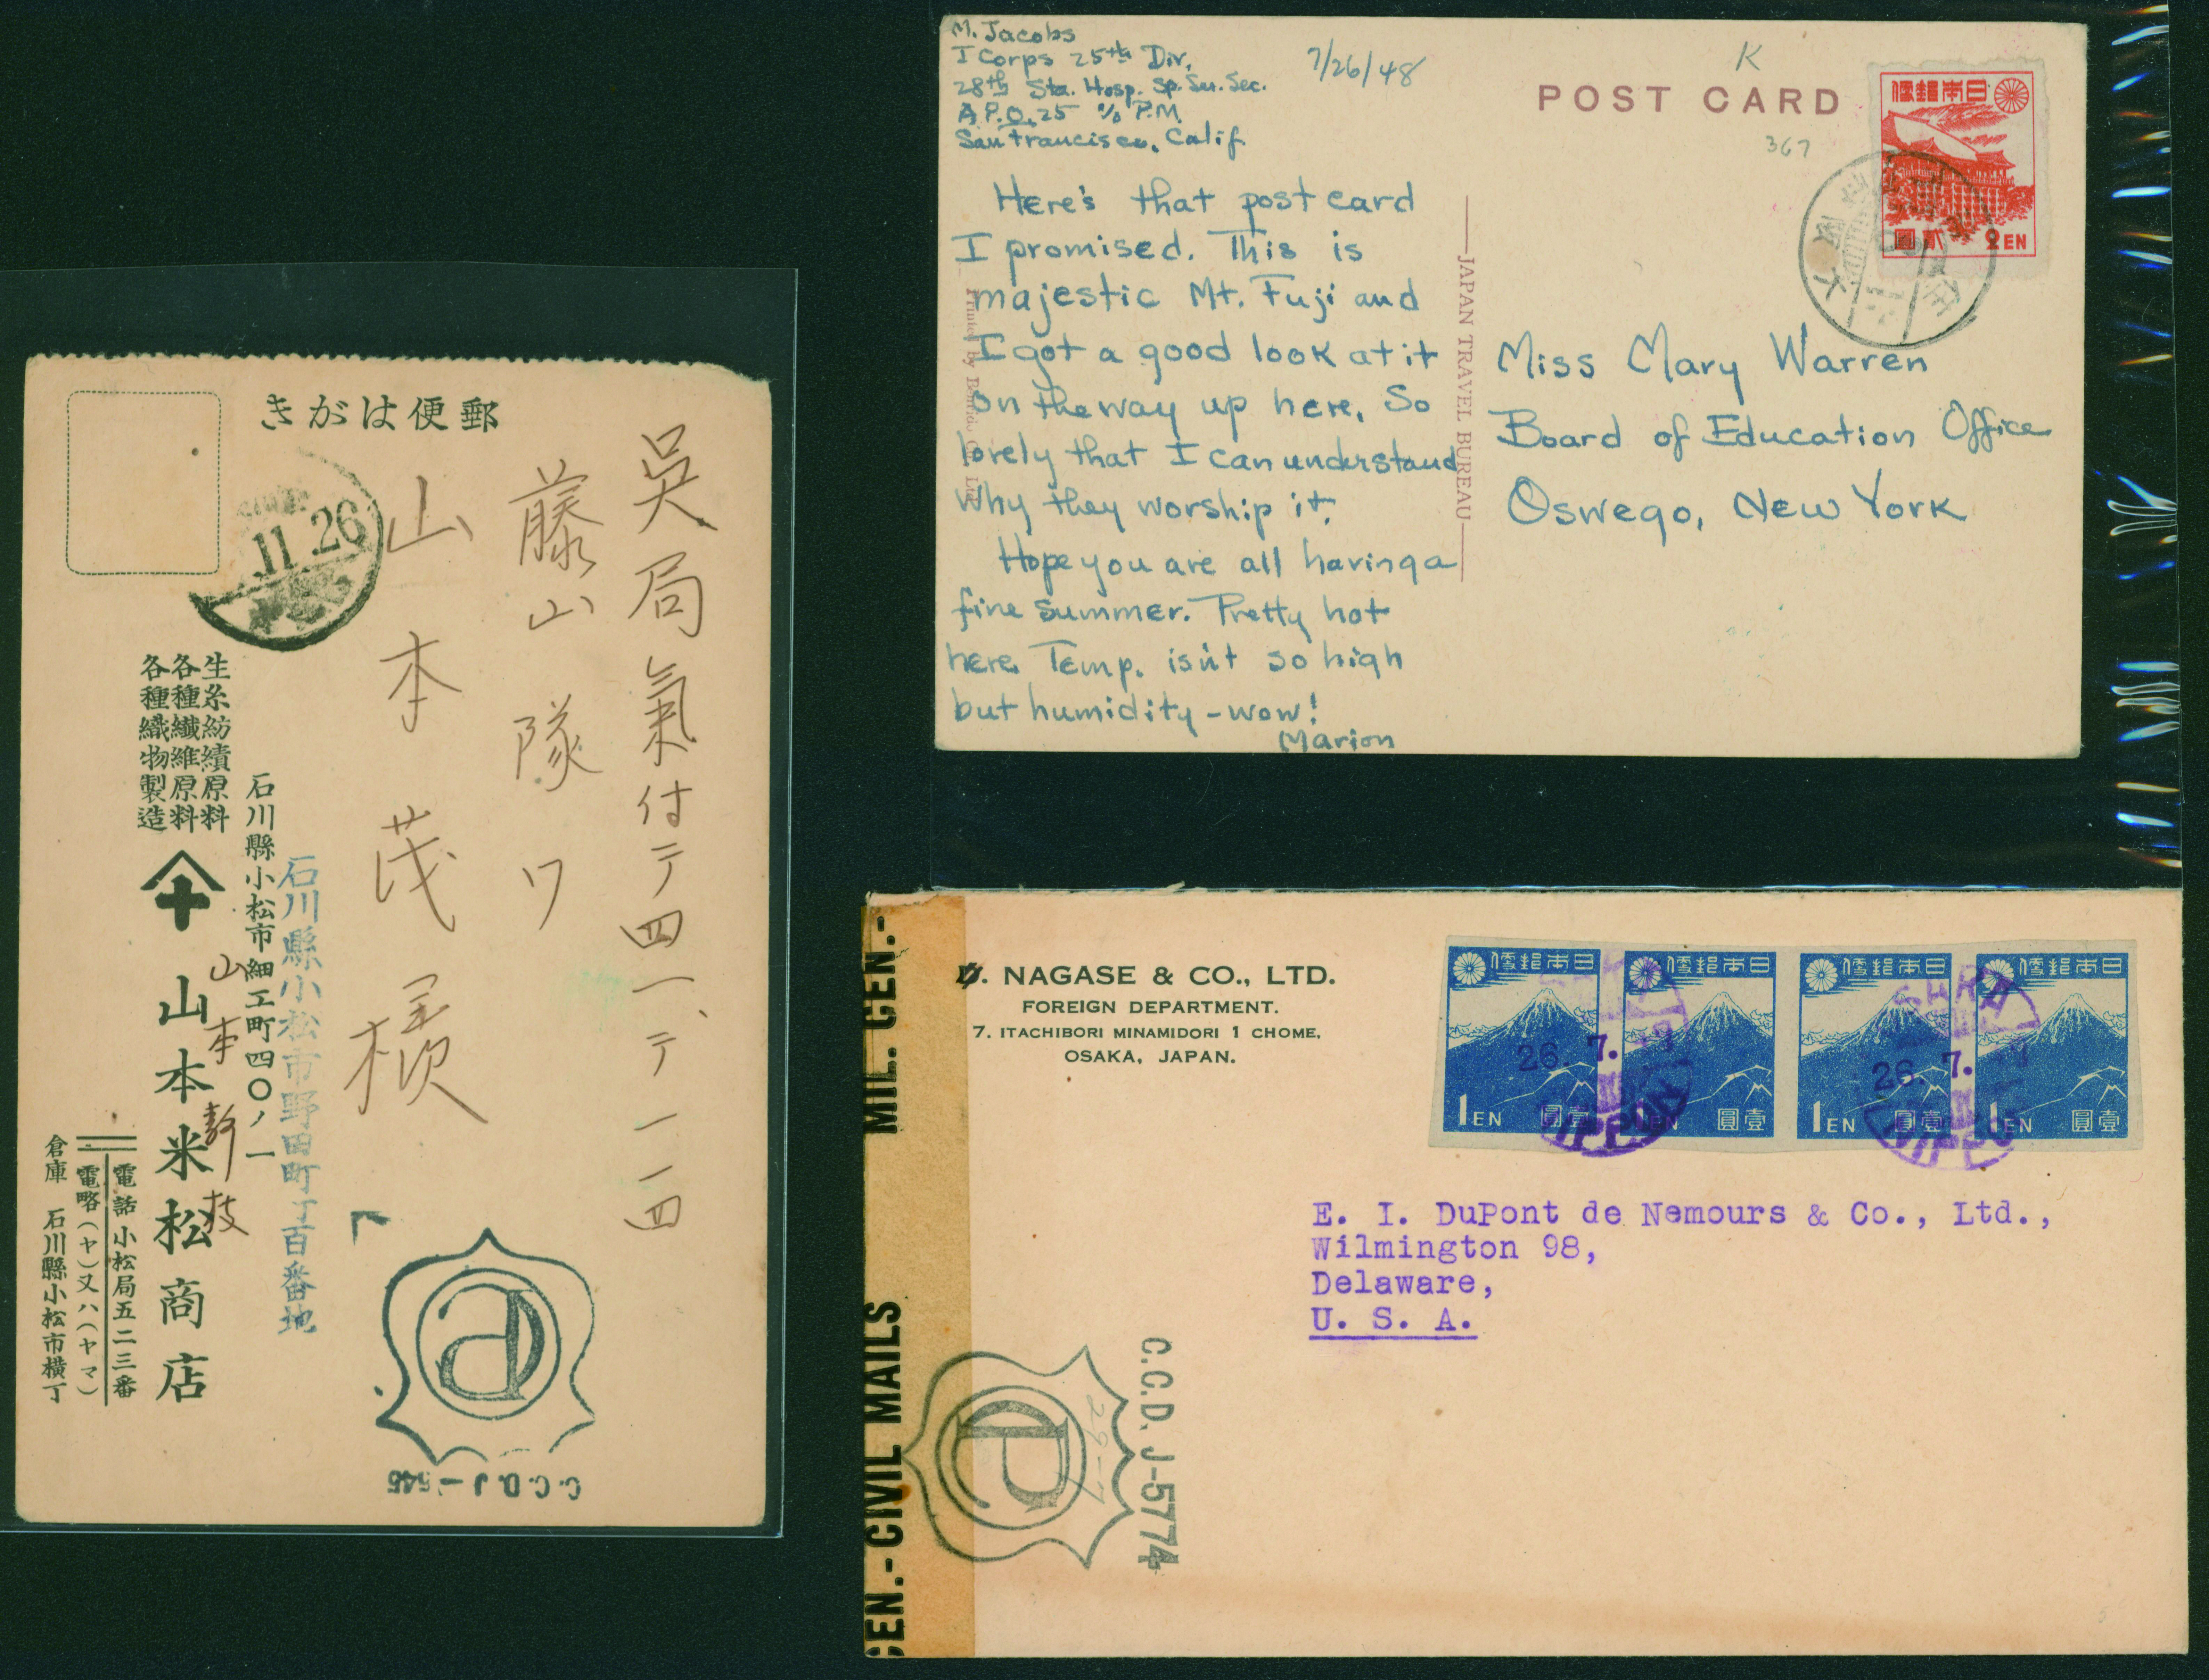 郵便はがき
11.26
呉局氣付テ四一、テ一一四
藤山隊ワ
山本茂
生糸紡績原料
各種纖維原料
各種織物製造
石川縣小松市細工町四〇ノ一
石川縣小松市野田町丁百番地
山本米松商店
山本静枝
電話 小松局五二三番
電略(ヤ)又ハ(ヤマ)
倉庫 石川縣小松市横丁
C.C.D. J-545
M. Jacobs
I Corps 25th Div.
28th Sta. Hosp. Sp. Ser. Sec.
A.P.O. 25 c/o P.M.
San Francisco, Calif.
7/26/48
K
POST CARD
367
日本郵便
貳圓
2 EN
Here's that post card
I promised. This is
majestic Mt. Fuji and
I got a good look at it
on the way up here. So
lovely that I can understand
why they worship it.
Hope you are all having a
fine summer. Pretty hot
here. Temp. isn't so high
but humidity - wow!
Marion
JAPAN TRAVEL BUREAU
Miss Mary Warren
Board of Education Office
Oswego, New York
MIL. CEN.-
CEN.-CIVIL MAILS
NAGASE & CO., LTD.
FOREIGN DEPARTMENT.
7. ITACHIBORI MINAMIDORI 1 CHOME.
OSAKA, JAPAN.
日本郵便 日本郵便 日本郵便 日本郵便
26. 7. 26. 7.
1 EN 壹圓 1 EN 壹圓 1 EN 壹圓 1 EN 壹圓
NIPPON NIPPON
E. I. DuPont de Nemours & Co., Ltd.,
Wilmington 98,
Delaware,
U. S. A.
C.C.D. J-5774
29-7